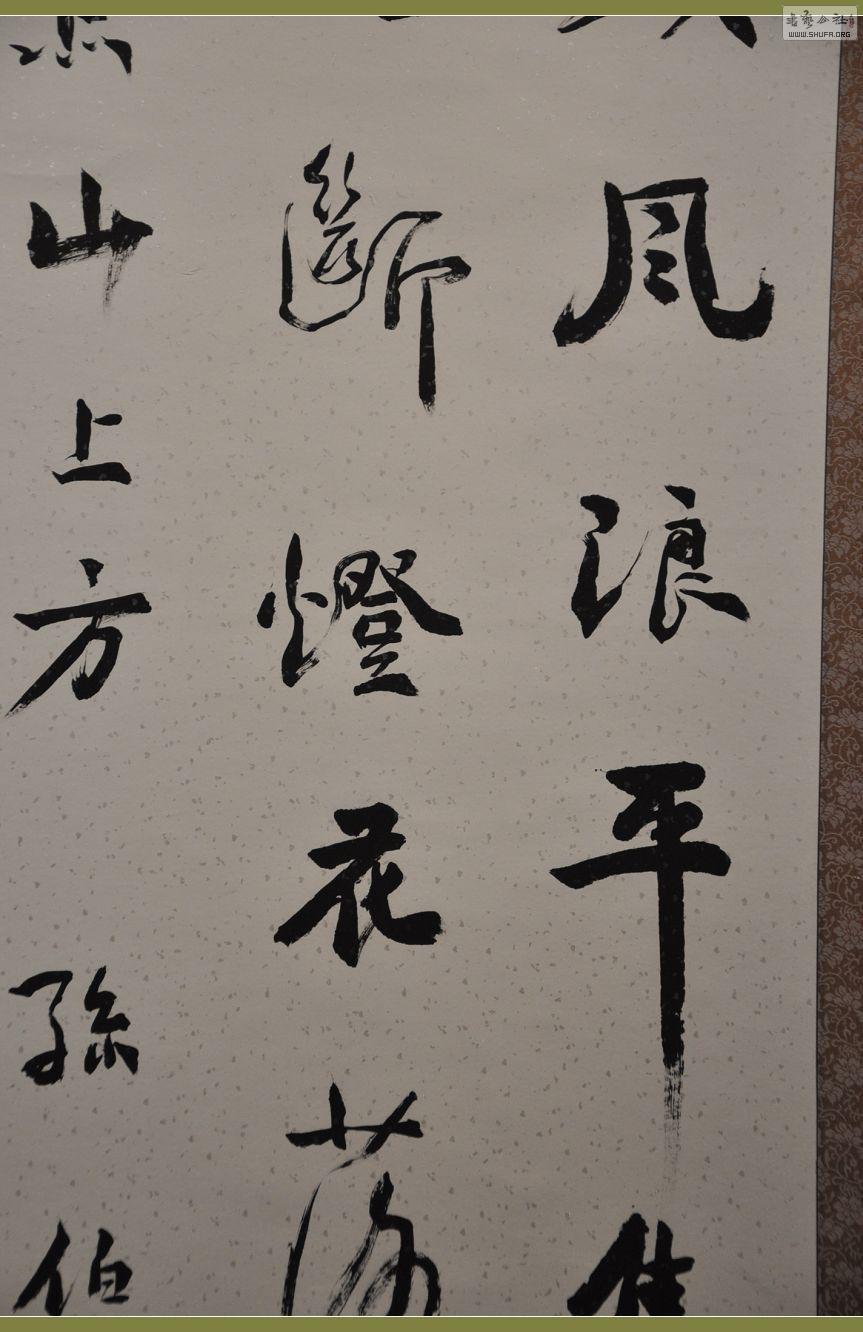 風浪平
斷燈花落
山上方 孫伯
書藝公社
WWW.SHUFA.ORG